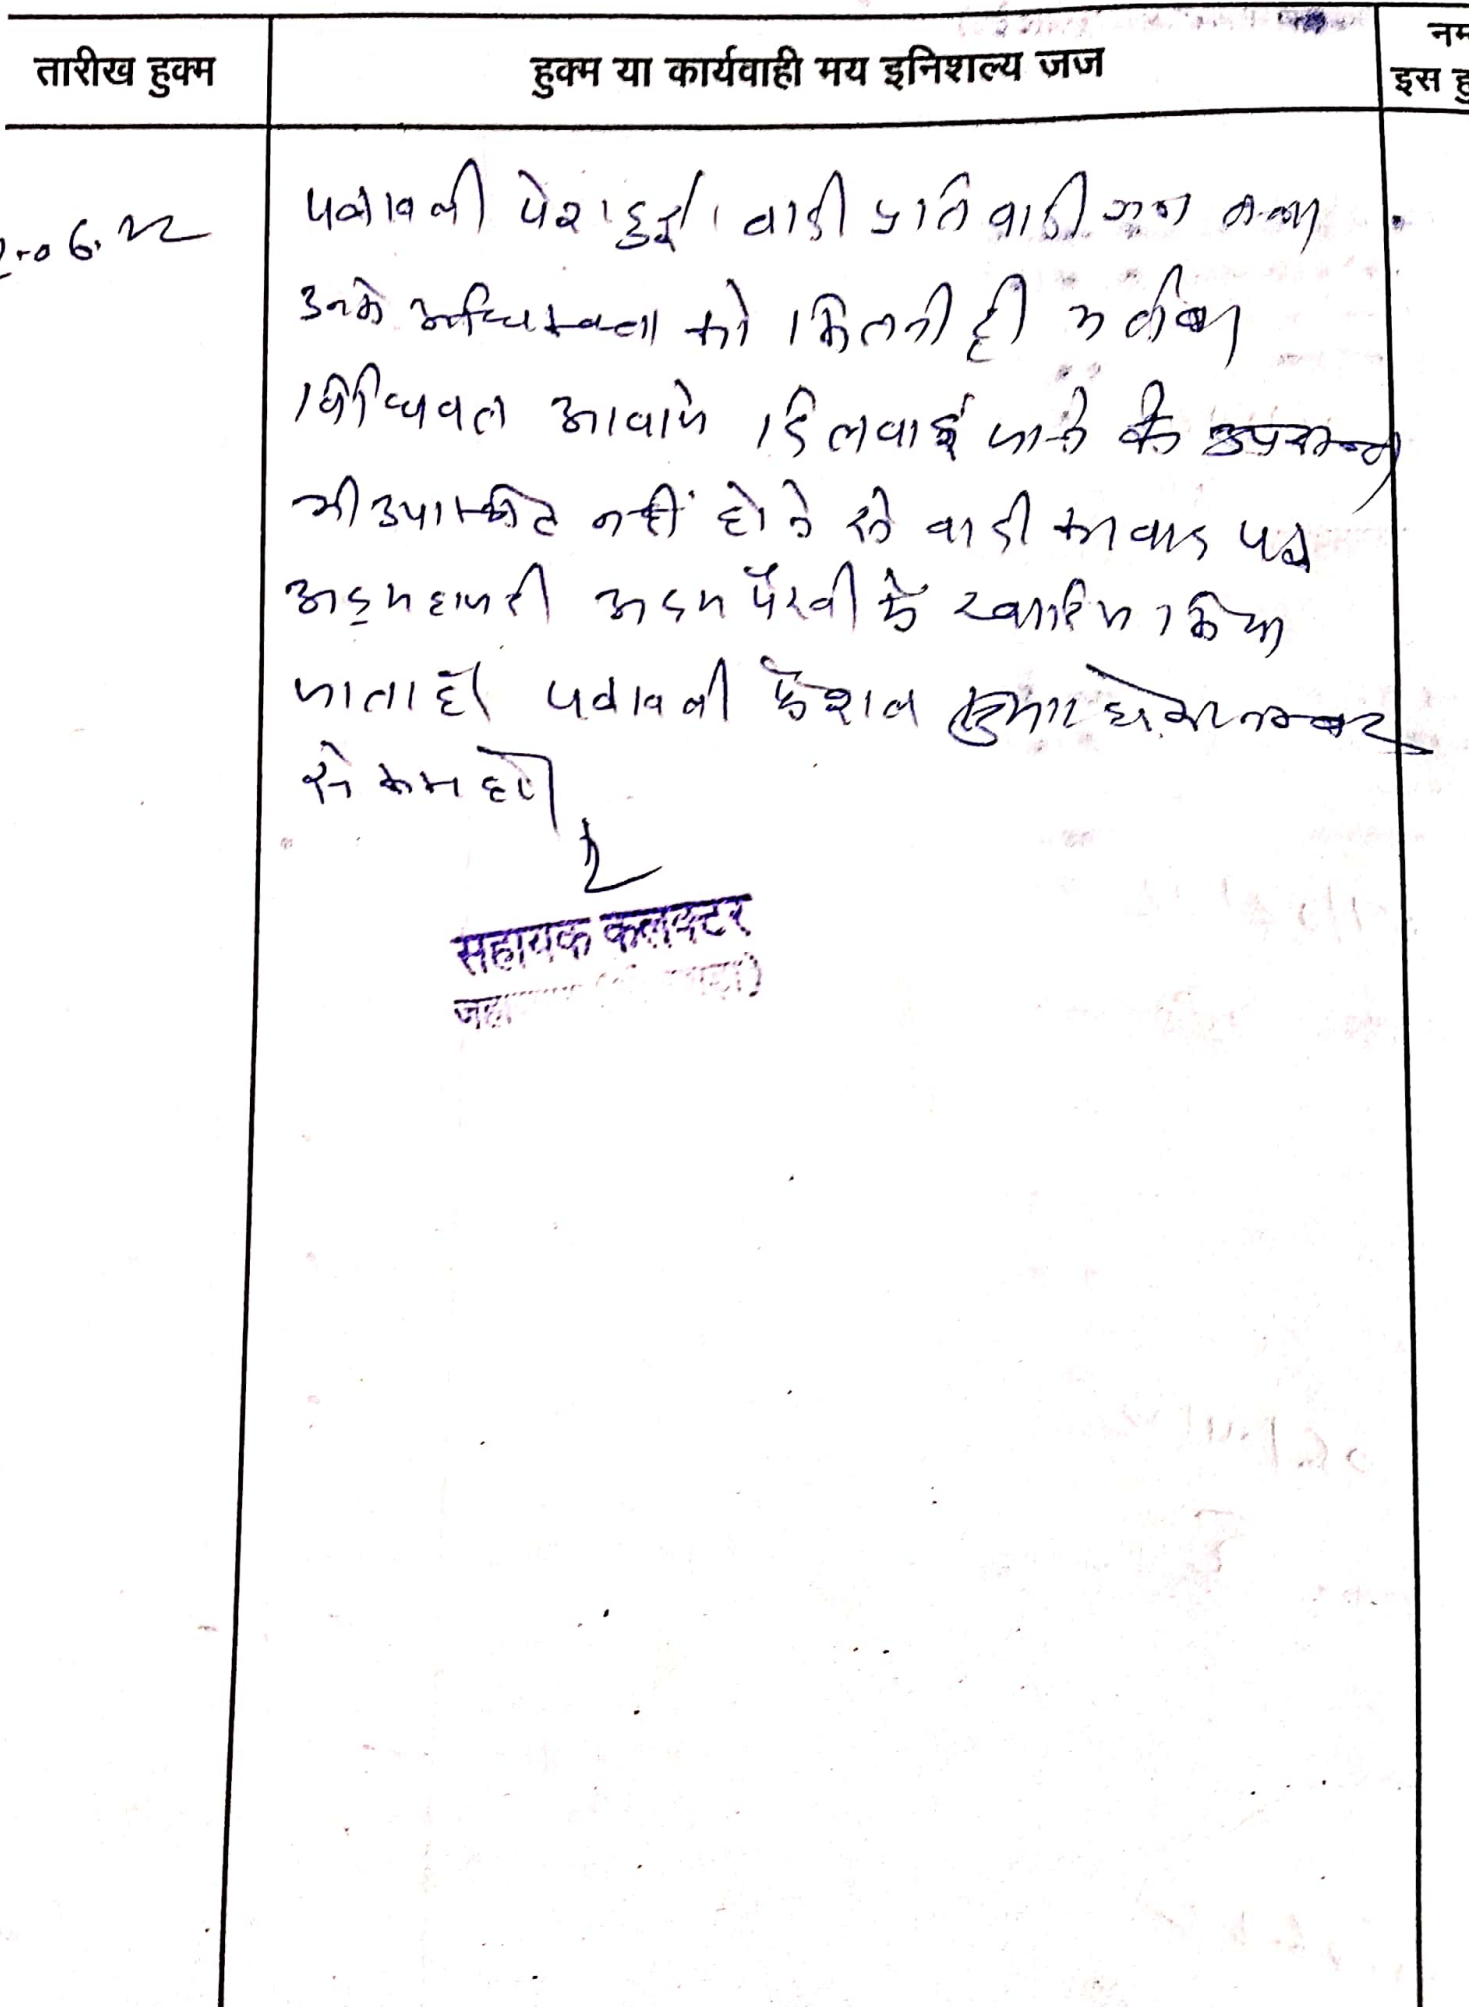 तारीख हुक्म
हुक्म या कार्यवाही मय इनिशल्य जज
नम
इस हु
6.22
पत्रावली पेश हुई। वादी प्रतिवादी गण तथा
उनके अधिवक्ता को कितनी ही मर्तबा
विधिवत आवाजे दिलवाई जाने के उपरान्त
भी उपस्थित नहीं होने से वादी का वाद पत्र
अदम हाजरी अदम पैरवी में खारिज किया
जाता है। पत्रावली फैशल शुमार होकर नम्बर
से कम हो।
सहायक कलक्टर